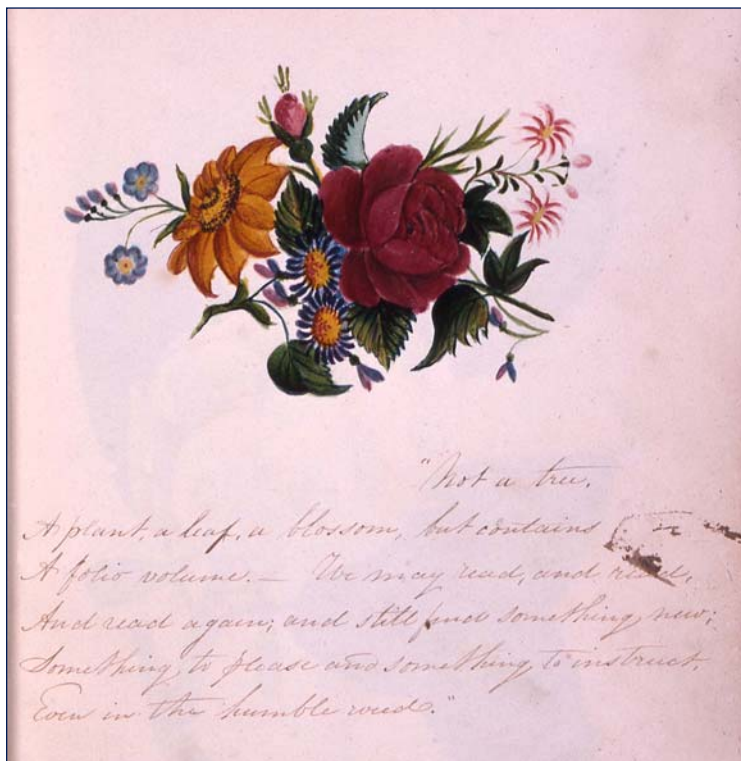 "Not a tree,
A plant, a leaf, a blossom, but contains
A folio volume. — We may read, and read,
And read again; and still find something new;
Something to please and something to instruct,
Even in the humble weed."